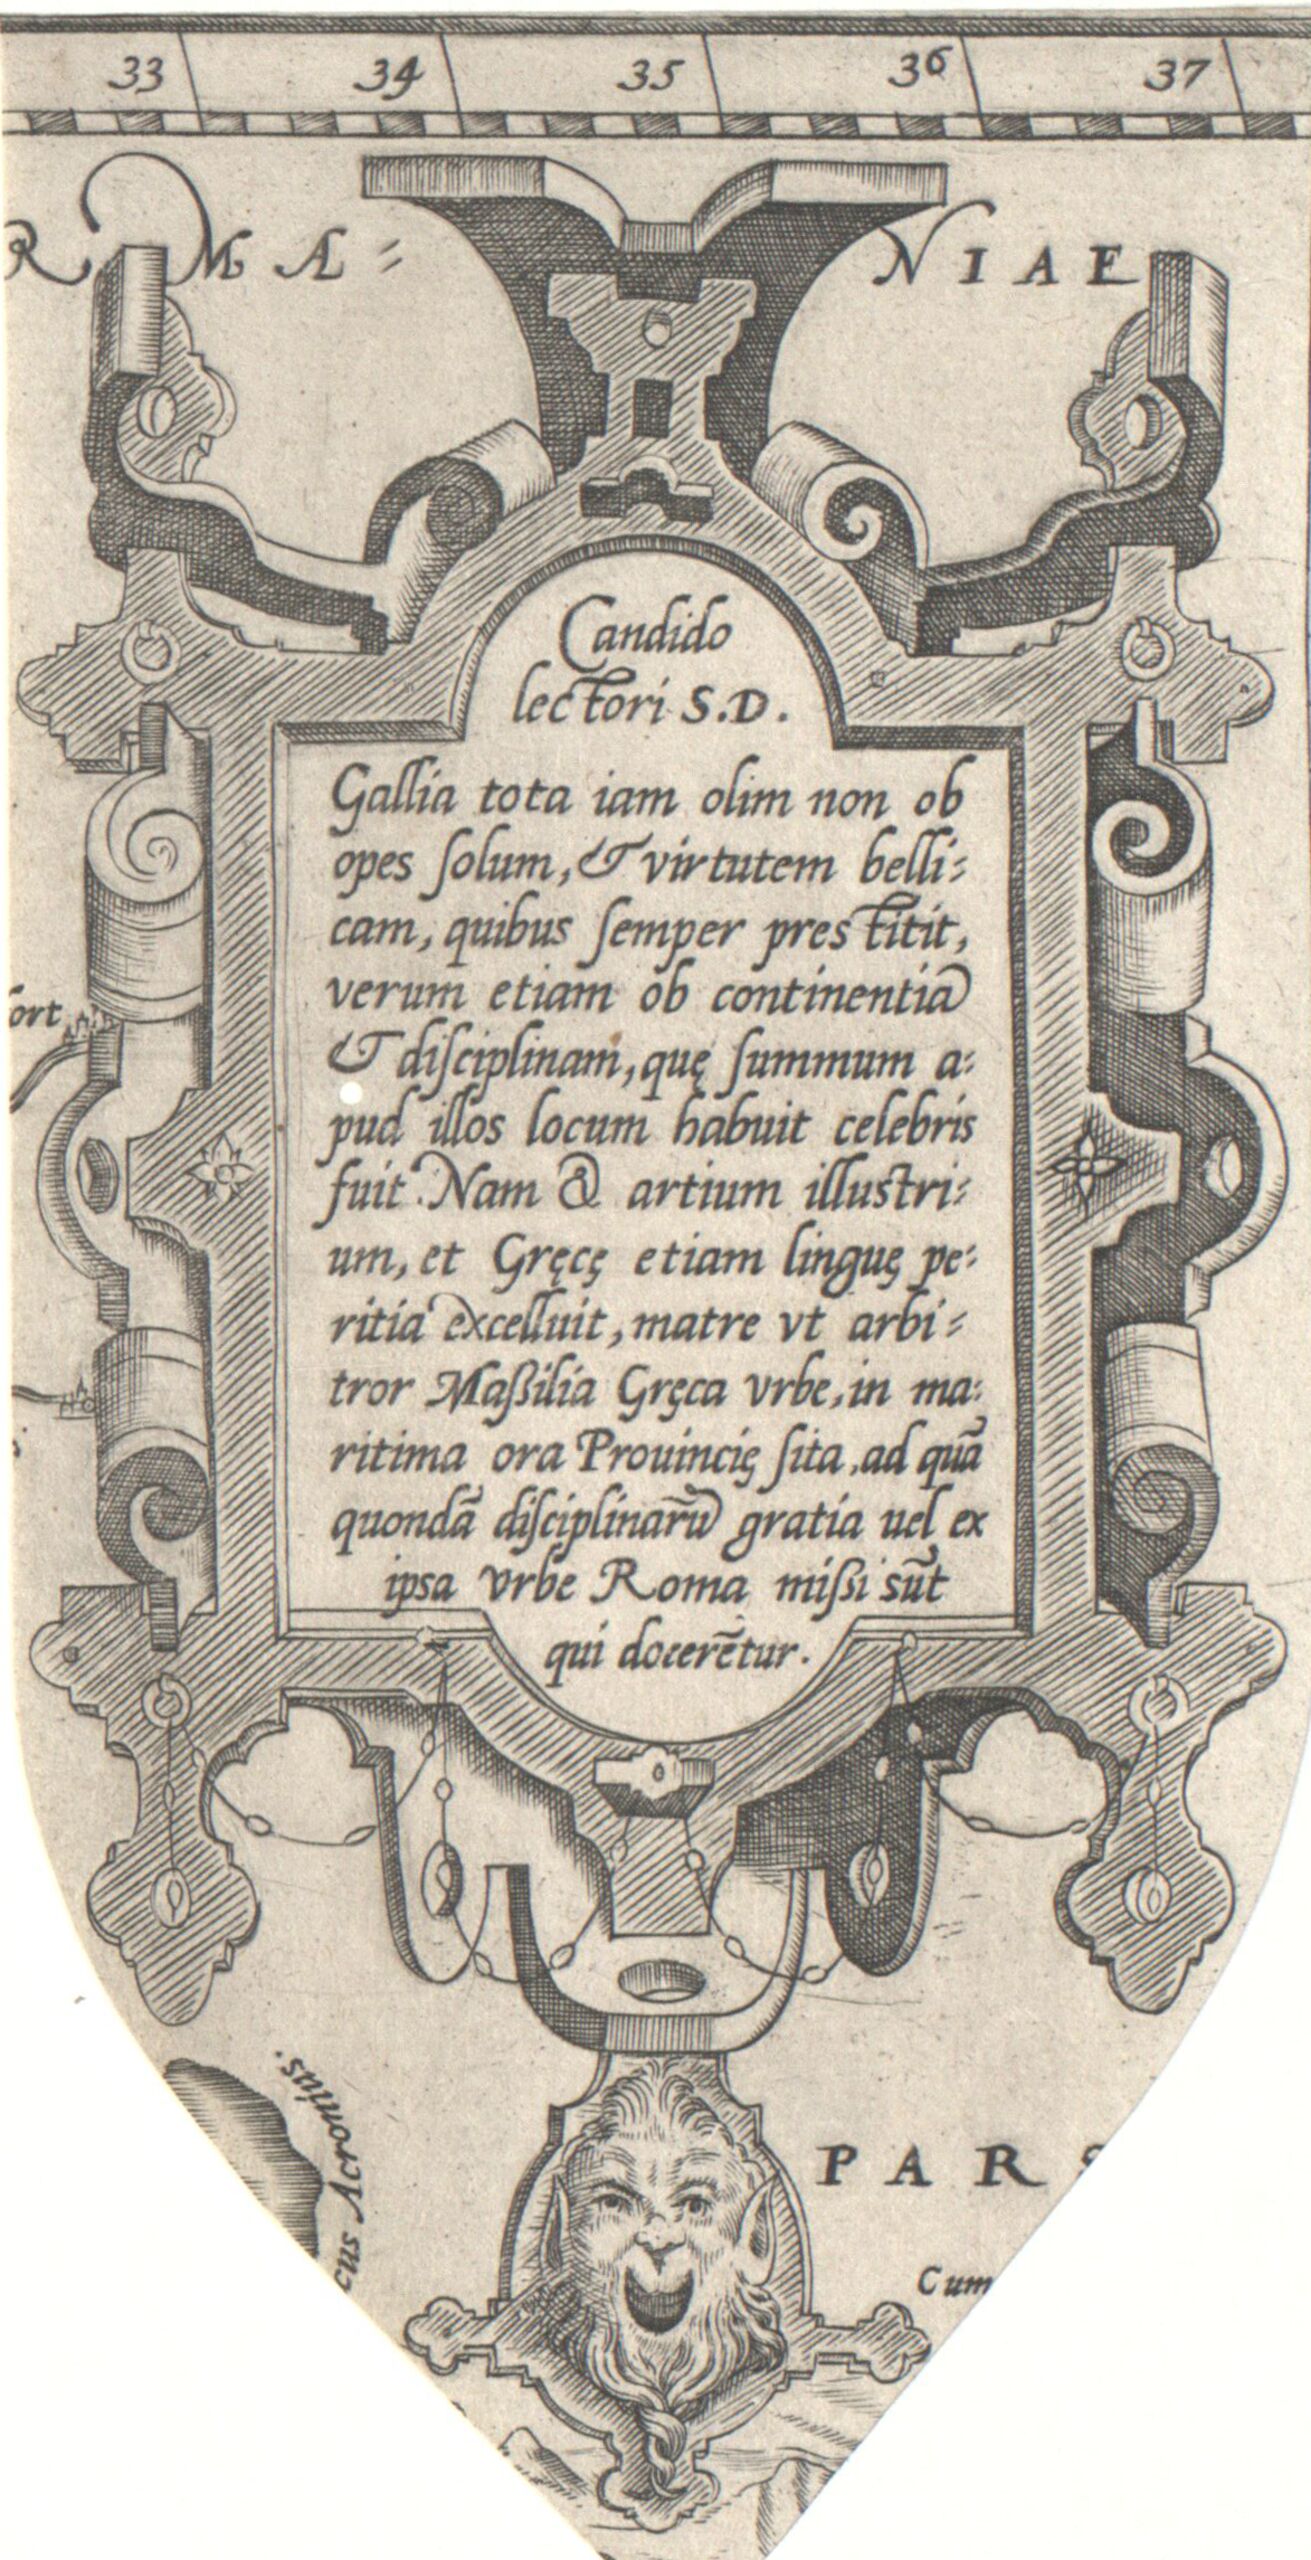 33 34 35 36 37
R M A⸗ NIAE
Candido
lectori S.D.
Gallia tota iam olim non ob
opes ſolum, & virtutem belli⸗
cam, quibus ſemper prestitit,
verum etiam ob continentiā
& diſciplinam, quę ſummum a⸗
pud illos locum habuit celebris
fuit. Nam & artium illustri⸗
um, et Gręcę etiam linguę pe⸗
ritia excelluit, matre vt arbi⸗
tror Maßilia Gręca vrbe, in ma⸗
ritima ora Prouincię ſita, ad quā
quondā diſciplinarū gratia uel ex
ipsa vrbe Roma miſsi sūt
qui docerētur.
ort
cus Acronius.
PARS
Cum